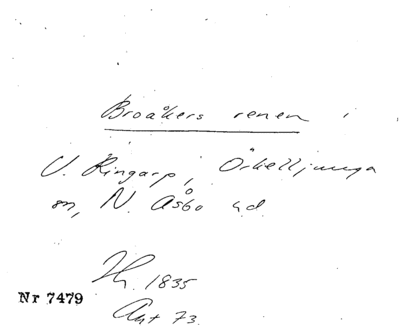 Broåkers renen i
V. Ringarp, Örkelljunga
sn, N. Åsbo hd.
1835
Nr 7479
Ant 73.